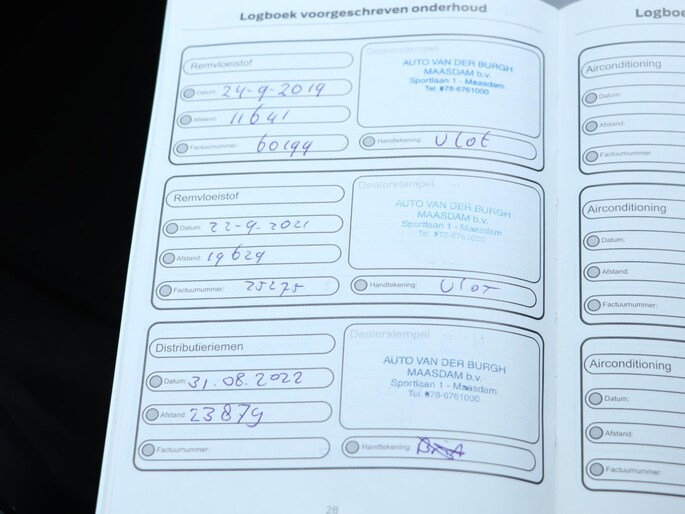 Logboek voorgeschreven onderhoud
Remvloeistof
Datum: 24-9-2019
Afstand: 11641
Factuurnummer: 60199
Dealerstempel
AUTO VAN DER BURGH
MAASDAM b.v.
Sportlaan 1 - Maasdam
Tel. 078-6761000
Handtekening: Vlot
Remvloeistof
Datum: 22-9-2021
Afstand: 19629
Factuurnummer: 25275
Dealerstempel
AUTO VAN DER BURGH
MAASDAM b.v.
Sportlaan 1 - Maasdam
Tel. 078-6761000
Handtekening: Vlot
Distributieriemen
Datum: 31.08.2022
Afstand: 23879
Factuurnummer:
Dealerstempel
AUTO VAN DER BURGH
MAASDAM b.v.
Sportlaan 1 - Maasdam
Tel. 078-6761000
Handtekening:
28
Logboe
Airconditioning
Datum:
Afstand:
Factuurnummer:
Airconditioning
Datum:
Afstand:
Factuurnummer:
Airconditioning
Datum:
Afstand:
Factuurnummer: